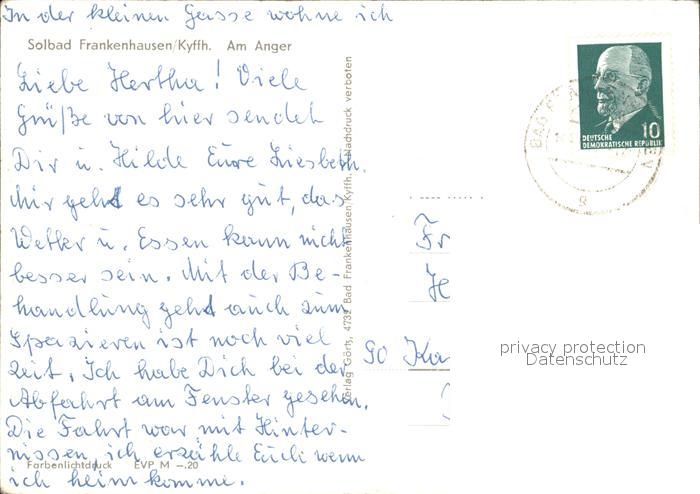 In der kleinen Gasse wohne ich
Solbad Frankenhausen/Kyffh. Am Anger
Liebe Hertha! Viele
Grüße von hier sendet
Dir u. Hilde Eure Liesbeth.
Mir geht es sehr gut, das
Wetter u. Essen kann nicht
besser sein. Mit der Be-
handlung geht auch zum
Spazieren ist noch viel
Zeit. Ich habe Dich bei der
Abfahrt am Fenster gesehen.
Die Fahrt war mit Hinter-
nissen, ich erzähle Euch wenn
ich heim komme.
Farbenlichtdruck EVP M –.20
Verlag Görtz, 4732 Bad Frankenhausen/Kyffh. Nachdruck verboten
10
DEUTSCHE
DEMOKRATISCHE REPUBLIK
BAD
g
Fr
H
90 Ka
privacy protection
Datenschutz